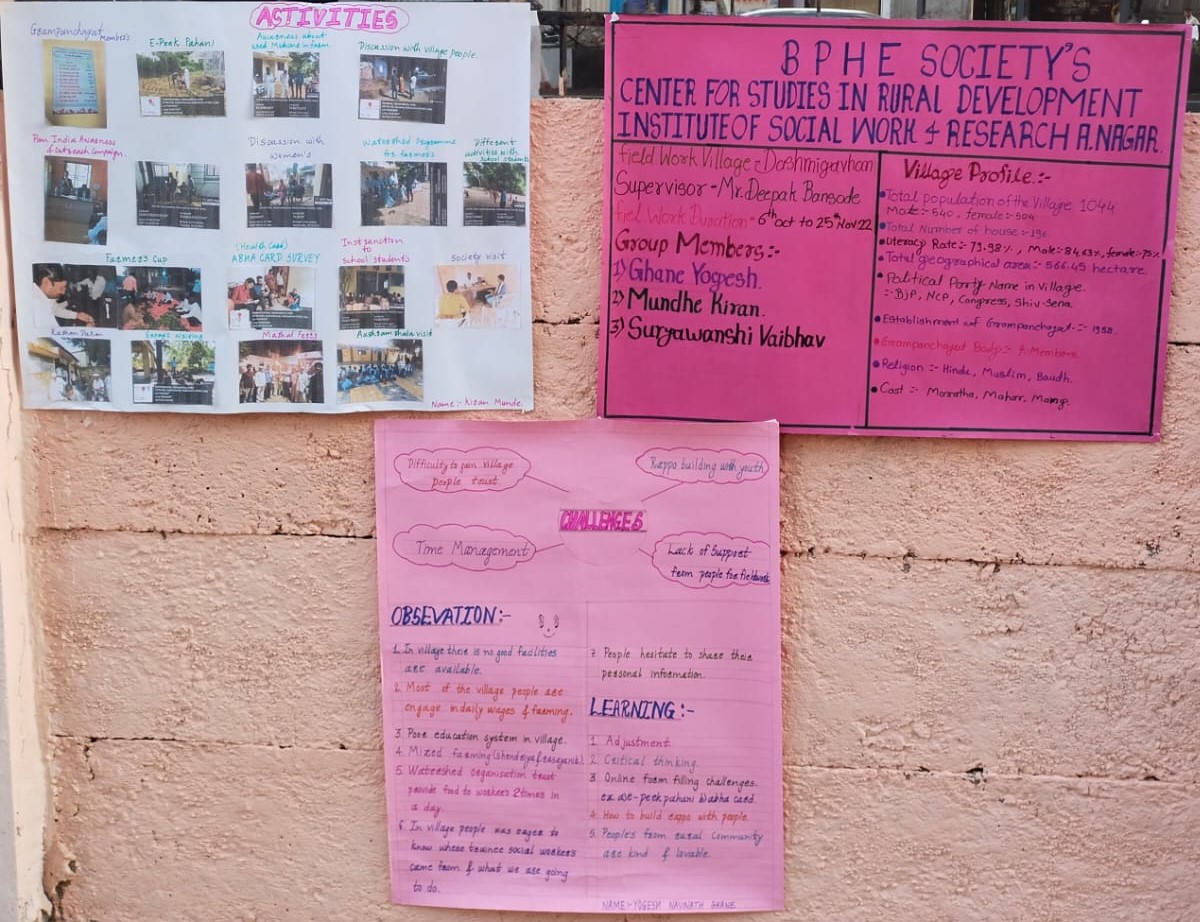 ACTIVITIES
Grampanchayat Members
E-Peek Pahani
Awareness about
used Medicine in farm
Discussion with village people.
Pan India Awareness
& Outreach Campaign.
Discussion with
Women's
Watershed Programme
for farmers
Different
activities with
school students
Farmers Cup
(Health Card)
ABHA CARD SURVEY
Instruction
to
school students
Society visit
Rashan Dukan
Mashal Ferry
Aashramshala visit
Name:- Kiran Munde.
BPHE SOCIETY'S
CENTER FOR STUDIES IN RURAL DEVELOPMENT
INSTITUTE OF SOCIAL WORK & RESEARCH A.NAGAR.
field Work Village = Dashmigavhan
Supervisor - Mr. Deepak Bansode
field Work Duration - 6th oct to 25th Nov 22
Group Members:-
1) Ghane Yogesh.
2) Mundhe Kiran.
3) Suryawanshi Vaibhav
Village Profile:-
• Total population of the Village 1044
Male:- 540, female:- 504
• Total Number of house:- 196
• Literacy Rate:- 79.98%, Male:- 84.63%, female:- 75%
• Total geographical area:- 566.45 hectare.
• Political Party Name in Village.
:- BJP, NCP, Congress, Shiv-Sena.
• Establishment of Grampanchayat:- 1958.
• Grampanchayat Body:- Members
• Religion :- Hindu, Muslim, Baudh.
• Cast :- Marratha, Mahar, Mang.
Difficulty to gain village
people trust.
Rappo building with youth
CHALLENGES
Time Management
Lack of Support
from people for fieldwork
OBSEVATION:-
1. In village there is no good facilities
are available.
2. Most of the village people are
engage in daily wages & farming.
3. Poor education system in village.
4. Mixed farming (Shendriya & rasayanik)
5. Watershed organisation trust
provide food to workers 2 times in
a day.
6. In village people was eager to
know where trainee social workers
came from & what we are going
to do.
7. People hesitate to share their
personal information.
LEARNING:-
1. Adjustment.
2. Critical thinking.
3. Online form filling challenges.
ex are - peek pahani & abha card.
4. How to build rappo with people.
5. People's from rural Community
are kind & lovable.
NAME:- YOGESH NAVNATH GHANE